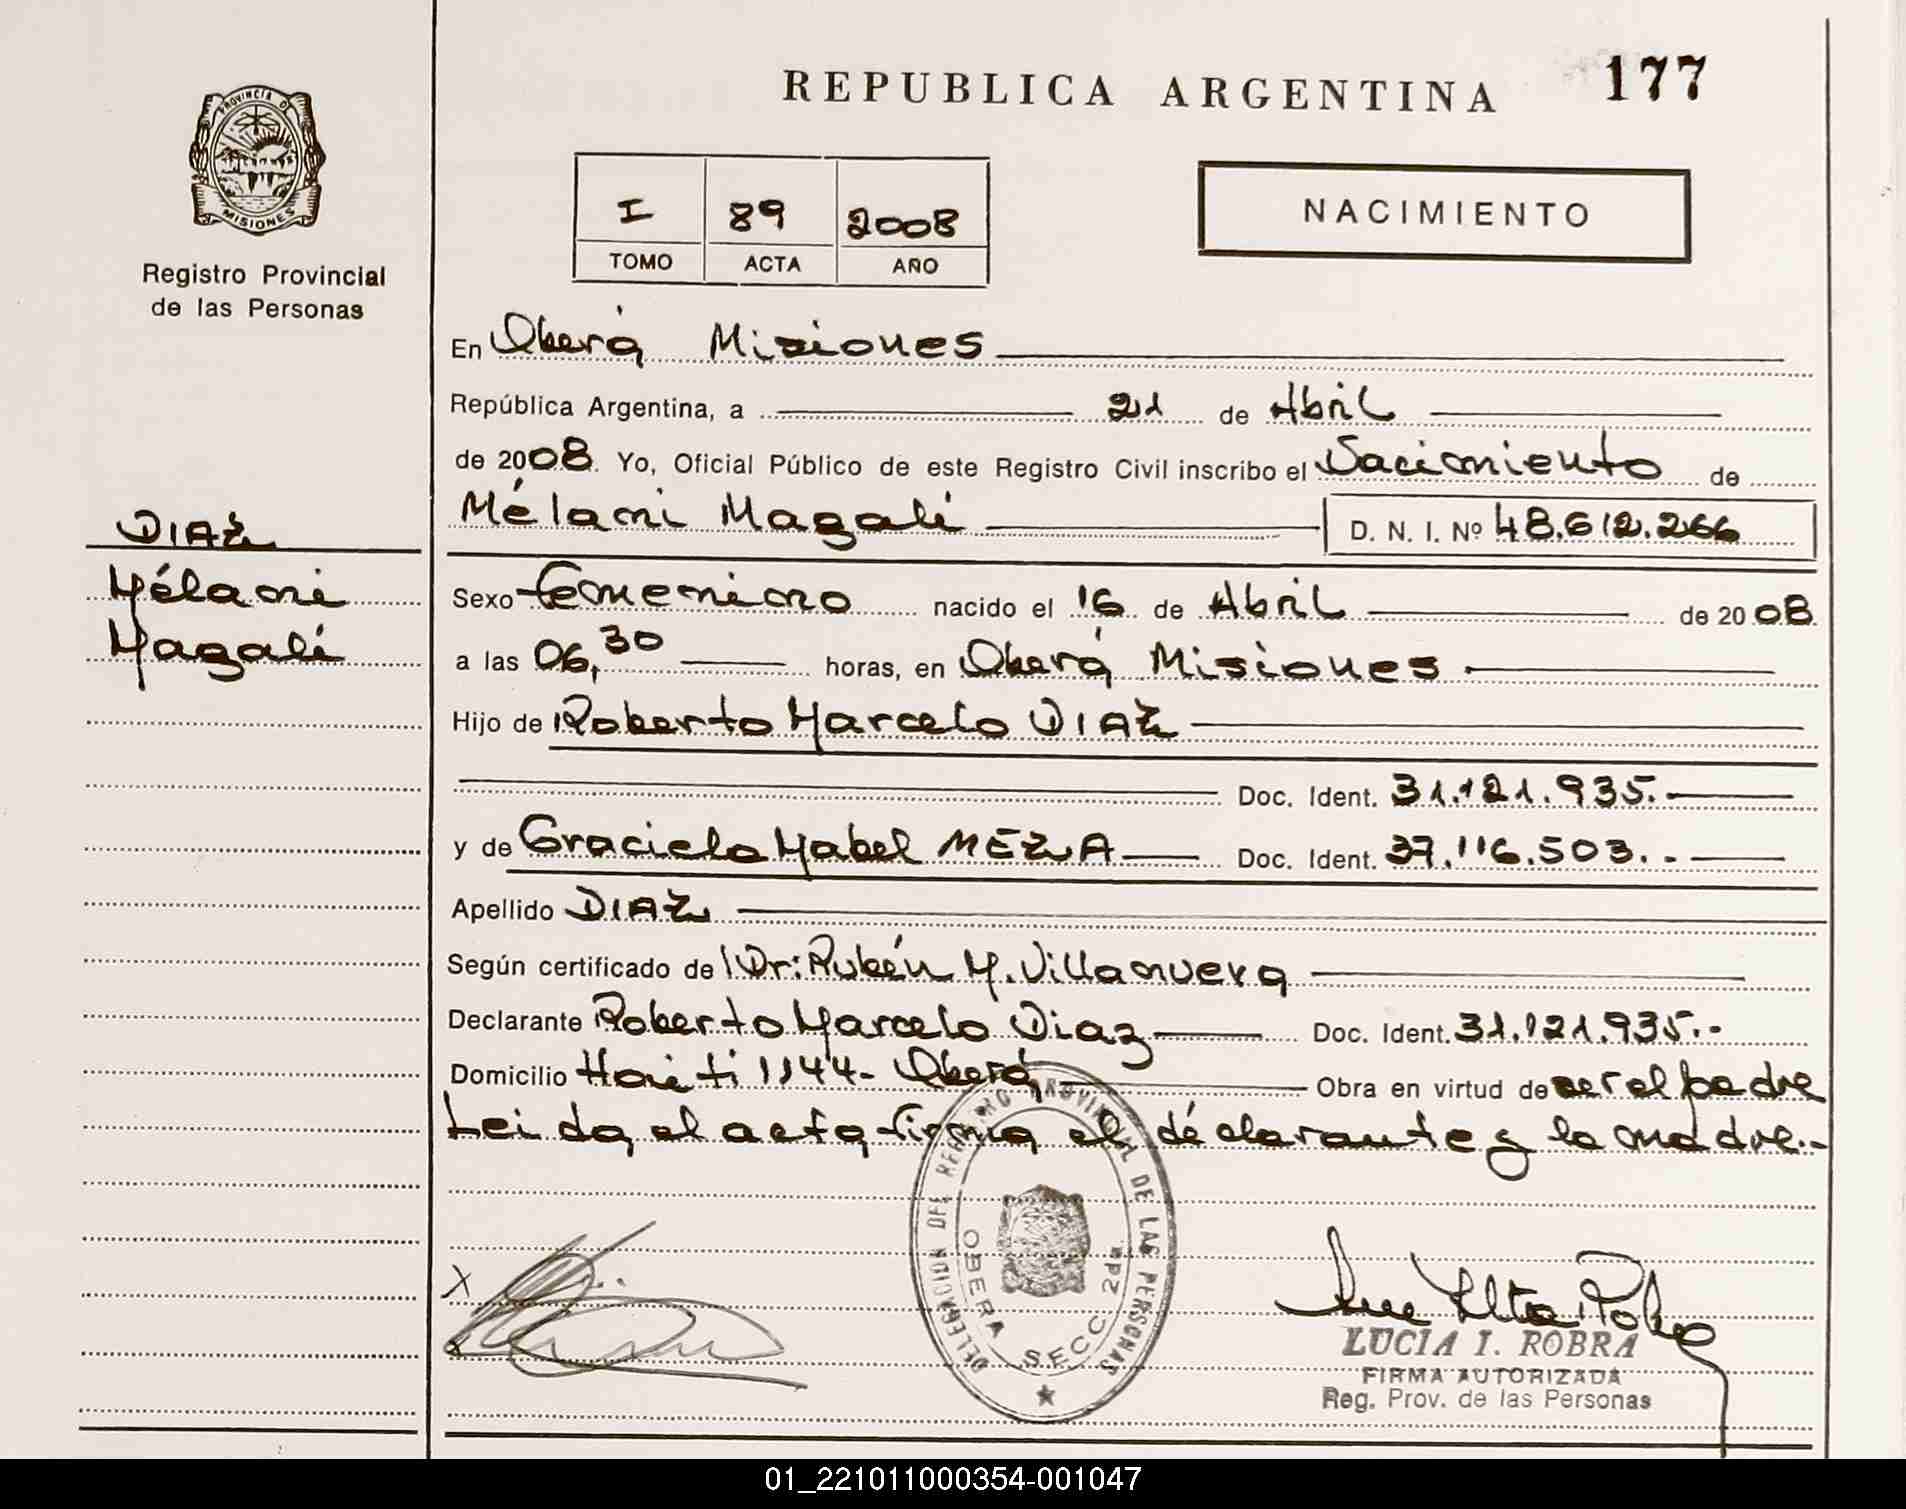 REPUBLICA ARGENTINA 177
PROVINCIA DE
MISIONES
Registro Provincial
de las Personas
NACIMIENTO
I 89 2008
TOMO ACTA AÑO
En Oberá Misiones
República Argentina, a 21 de Abril
de 2008. Yo, Oficial Público de este Registro Civil inscribo el Nacimiento de
Mélani Magalí D. N. I. Nº 48.612.266
DIAZ
Mélani
Magalí
Sexo femenino nacido el 16 de Abril de 2008
a las 06,30 horas, en Oberá Misiones
Hijo de Roberto Marcelo DIAZ
Doc. Ident. 31.121.935.-
y de Graciela Mabel MEZA Doc. Ident. 37.116.503.-
Apellido DIAZ
Según certificado de Dr: Rubén M. Villanueva
Declarante Roberto Marcelo Diaz Doc. Ident. 31.121.935.-
Domicilio Haití 1144- Oberá Obra en virtud de ser el padre
Leida el acta firma el déclarante y la madre.-
DELEGACION DEL REGISTRO PROVINCIAL DE LAS PERSONAS
OBERA SECC. 2da
LUCIA I. ROBRA
FIRMA AUTORIZADA
Reg. Prov. de las Personas
01_221011000354-001047